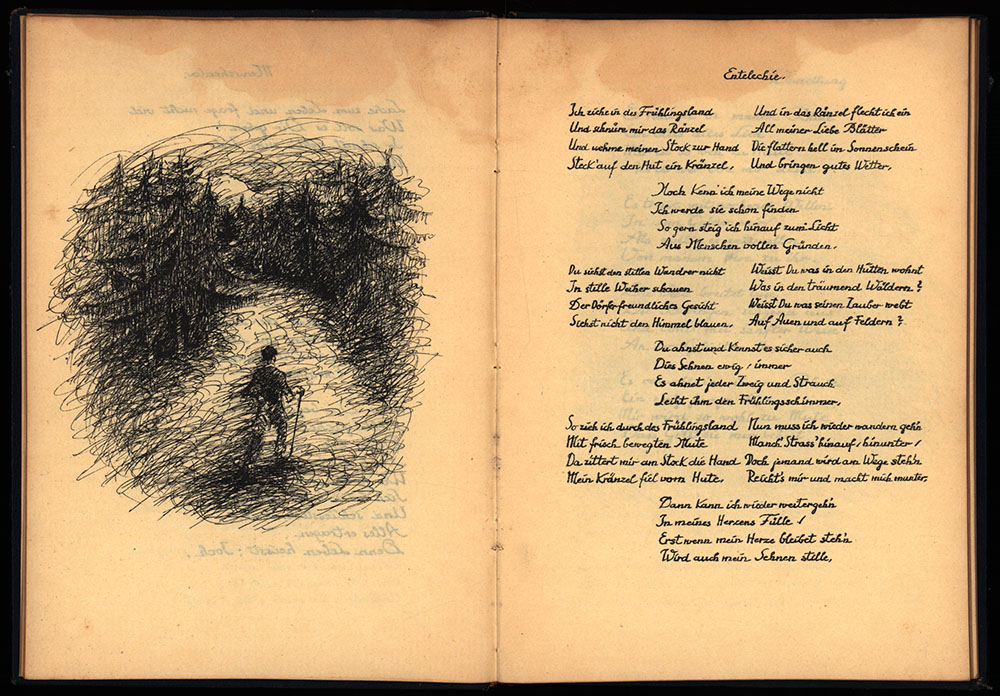 Entelechie.
Ich ziehe in des Frühlingsland
Und schnüre mir das Ränzel
Und nehme meinen Stock zur Hand
Steck' auf den Hut ein Kränzel.
Und in das Ränzel flecht ich ein
All meiner Liebe Blätter
Die flattern hell im Sonnenschein
Und bringen gutes Wetter.
Noch kenn' ich meine Wege nicht
Ich werde sie schon finden
So gern steig' ich hinauf zum Licht
Aus Menschen vollen Gründen.
Du siehst den stillen Wandrer nicht
In stille Weiher schauen
Der Dörfer freundliches Gesicht
Siehst nicht den Himmel blauen.
Weisst Du was in den Hütten wohnt
Was in den träumend Wäldern?
Weisst Du was seinen Zauber webt
Auf Auen und auf Feldern?
Du ahnst und kennst es sicher auch
Dies Sehnen ewig, immer
Es ahnet jeder Zweig und Strauch
Leiht ihm den Frühlingsschimmer.
So zieh ich durch des Frühlingsland
Mit frisch bewegten Mute
Da zittert mir am Stock die Hand
Mein Kränzel fiel vom Hute.
Nun muss ich wieder wandern geh'n
Manch' Strass' hinauf, hinunter,
Doch jemand wird am Wege steh'n
Reicht's mir und macht mich munter.
Dann kann ich wieder weitergeh'n
In meines Herzens Fülle!
Erst wenn mein Herze bleibet steh'n
Wird auch mein Sehnen stille.